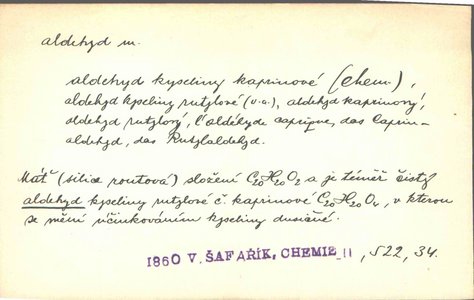 aldehyd m.
aldehyd kyseliny kaprinové (chem.),
aldehyd kyseliny rutylové (v.a.), aldehyd kaprinový,
aldehyd rutylový, l'aldéhyde caprique, das Caprin-
aldehyd, das Rutylaldehyd.
(silice routová) složení C20H20O2 a je téměř čistý
aldehyd kyseliny rutylové č. kaprinové C20H20O4, v kterou
se mění účinkováním kyseliny dusičné.
1860 V. ŠAFAŘÍK, CHEMIE II, 522, 34.